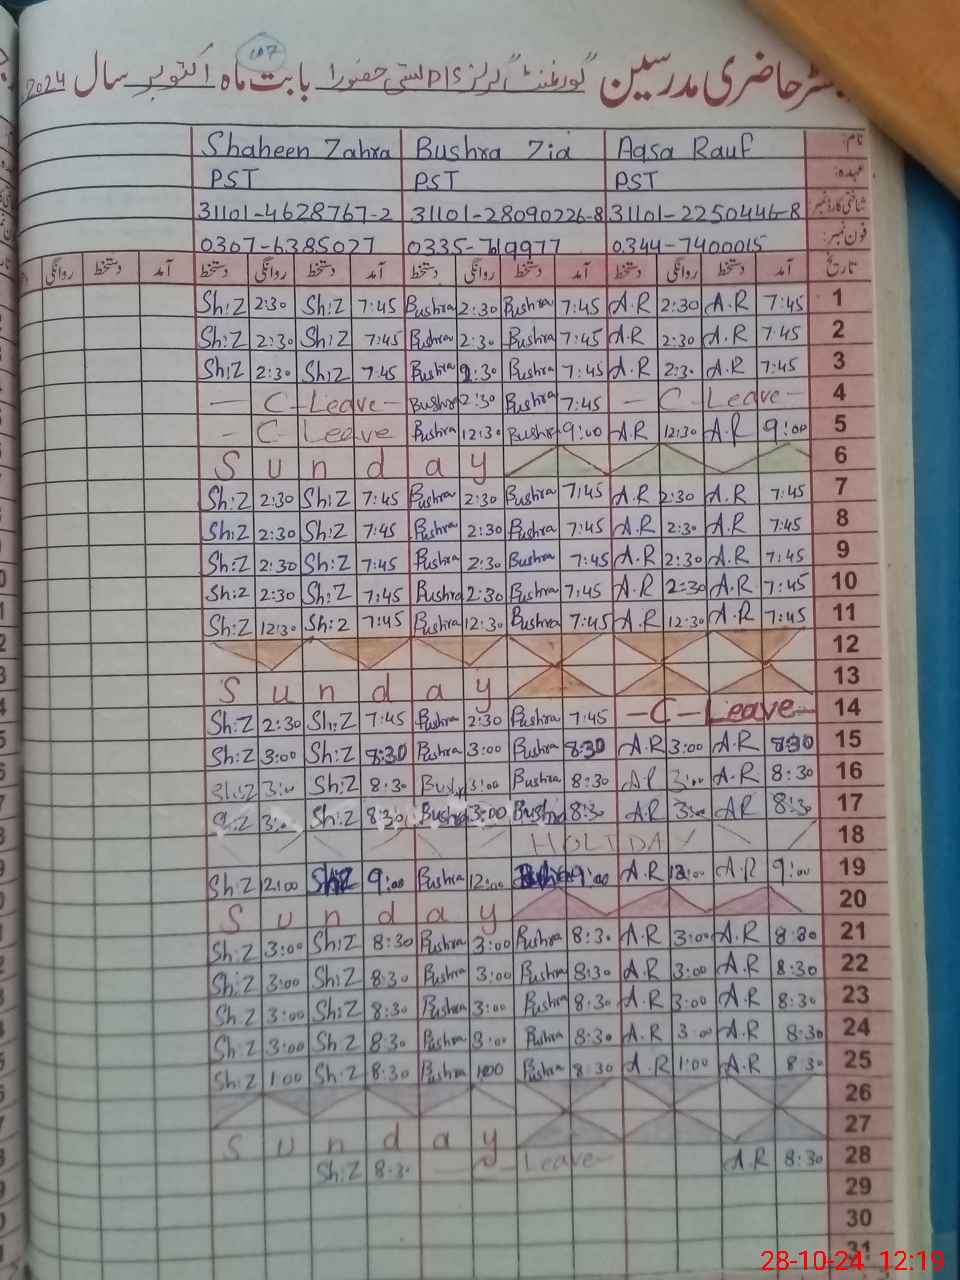 رجسٹر حاضری مدرسین گورنمنٹ گرلز P/S بستی حضورا بابت ماہ اکتوبر سال 2024
107
نام: Aqsa Rauf Bushra Zia Shaheen Zahra
عہدہ: PST PST PST
شناختی کارڈ نمبر: 31101-2250446-8 31101-28090226-8 31101-4628767-2
فون نمبر: 0344-7400015 0335-7619977 0307-6385027
تاریخ آمد دستخط روانگی دستخط آمد دستخط روانگی دستخط آمد دستخط روانگی دستخط آمد دستخط روانگی
1 7:45 A.R 2:30 A.R 7:45 Bushra 2:30 Bushra 7:45 Sh:Z 2:30 Sh:Z
2 7:45 A.R 2:30 A.R 7:45 Bushra 2:30 Bushra 7:45 Sh:Z 2:30 Sh:Z
3 7:45 A.R 2:30 A.R 7:45 Bushra 2:30 Bushra 7:45 Sh:Z 2:30 Sh:Z
4 - C - Leave - 7:45 Bushra 2:30 Bushra - C - Leave -
5 9:00 A.R 12:30 A.R 9:00 Bushra 12:30 Bushra - C - Leave
6 Sunday
7 7:45 A.R 2:30 A.R 7:45 Bushra 2:30 Bushra 7:45 Sh:Z 2:30 Sh:Z
8 7:45 A.R 2:30 A.R 7:45 Bushra 2:30 Bushra 7:45 Sh:Z 2:30 Sh:Z
9 7:45 A.R 2:30 A.R 7:45 Bushra 2:30 Bushra 7:45 Sh:Z 2:30 Sh:Z
10 7:45 A.R 2:30 A.R 7:45 Bushra 2:30 Bushra 7:45 Sh:Z 2:30 Sh:Z
11 7:45 A.R 12:30 A.R 7:45 Bushra 12:30 Bushra 7:45 Sh:Z 12:30 Sh:Z
12
13 Sunday
14 - C - Leave - 7:45 Bushra 2:30 Bushra 7:45 Sh:Z 2:30 Sh:Z
15 8:30 A.R 3:00 A.R 8:30 Bushra 3:00 Bushra 8:30 Sh:Z 3:00 Sh:Z
16 8:30 A.R 3:00 A.R 8:30 Bushra 3:00 8:30 Sh:Z 3:00 Sh:Z
17 8:30 AR 3:00 AR 8:30 Bushra 3:00 Bushra 8:30 Sh:Z Sh:Z
18 HOLIDAY
19 9:00 A.R 12:00 A.R 9:00 Bushra 12:00 Bushra 9:00 Sh:Z 12:00 Sh:Z
20 Sunday
21 8:30 A.R 3:00 A.R 8:30 Bushra 3:00 Bushra 8:30 Sh:Z 3:00 Sh:Z
22 8:30 A.R 3:00 A.R 8:30 Bushra 3:00 Bushra 8:30 Sh:Z 3:00 Sh:Z
23 8:30 A.R 3:00 A.R 8:30 Bushra 3:00 Bushra 8:30 Sh:Z 3:00 Sh:Z
24 8:30 A.R 3:00 A.R 8:30 Bushra 3:00 Bushra 8:30 Sh:Z 3:00 Sh:Z
25 8:30 A.R 1:00 A.R 8:30 Bushra 1:00 Bushra 8:30 Sh:Z 1:00 Sh:Z
26
27 Sunday
28 8:30 A.R Leave 8:30 Sh:Z
29
30
31
28-10-24 12:19